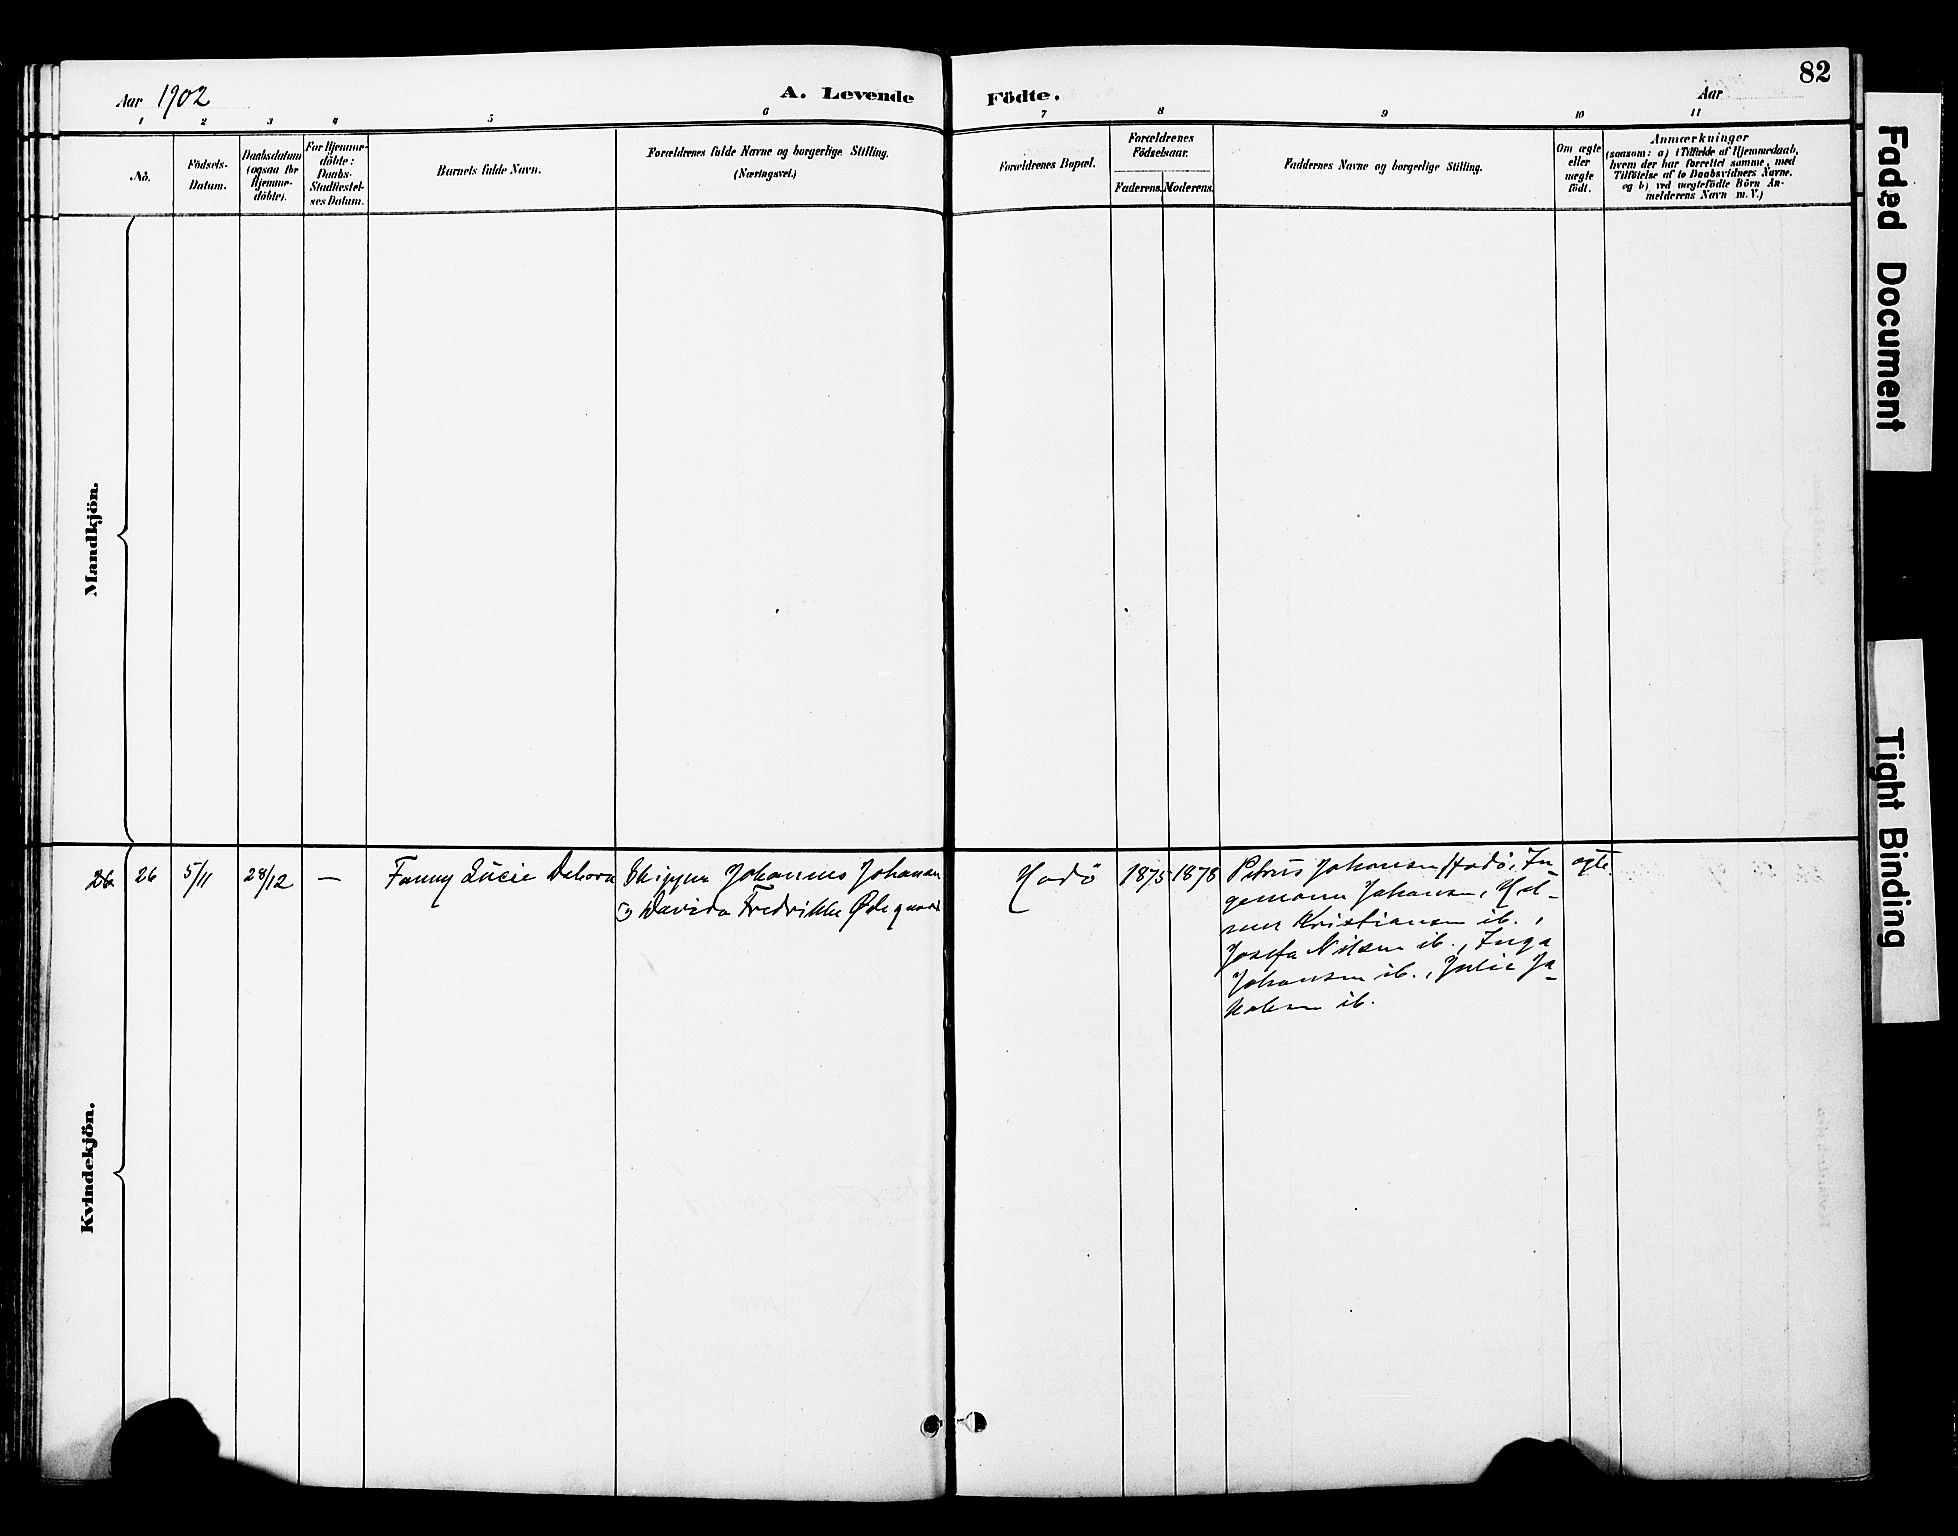 Aar 1902
A. Levende
Födte.
Aar
82
1 2 3 4 5 6 7 8 9 10 11
No.
Födsels-
Datum.
Daabsdatum
(ogsaa for
Hjemme-
döbte).
For Hjemme-
döbte:
Daabs-
Stadfæstel-
ses Datum.
Barnets fulde Navn.
Forældrenes fulde Navne og borgerlige Stilling.
(Næringsvei.)
Forældrenes Bopæl.
Forældrenes
Födselsaar.
Faderens. Moderens.
Faddernes Navne og borgerlige Stilling.
Om ægte
eller
uægte
födt.
Anmærkninger
(saasom: a) i Tilfælde af Hjemmedaab,
hvem der har forrettet samme, med
Tilföielse af to Daabsvidners Navne.
og b) ved uægtefödte Börn An-
melderens Navn m. V.)
Mandkjön.
26 26 5/11 28/12 — Fanny Lucie Debora
Skipper Johannes Johansen
Davida Fredrikke Ødegaard
Hadö 1875 1878
Petrus Johansen Hadö, In-
gemann Johansen, Hel-
mer Kristiansen ib.,
Josefa Nilsen ib., Inga
Johansen ib., Julie Ja-
kobsen ib.
ægte
Kvindekjön.
Faded Document
Tight Binding